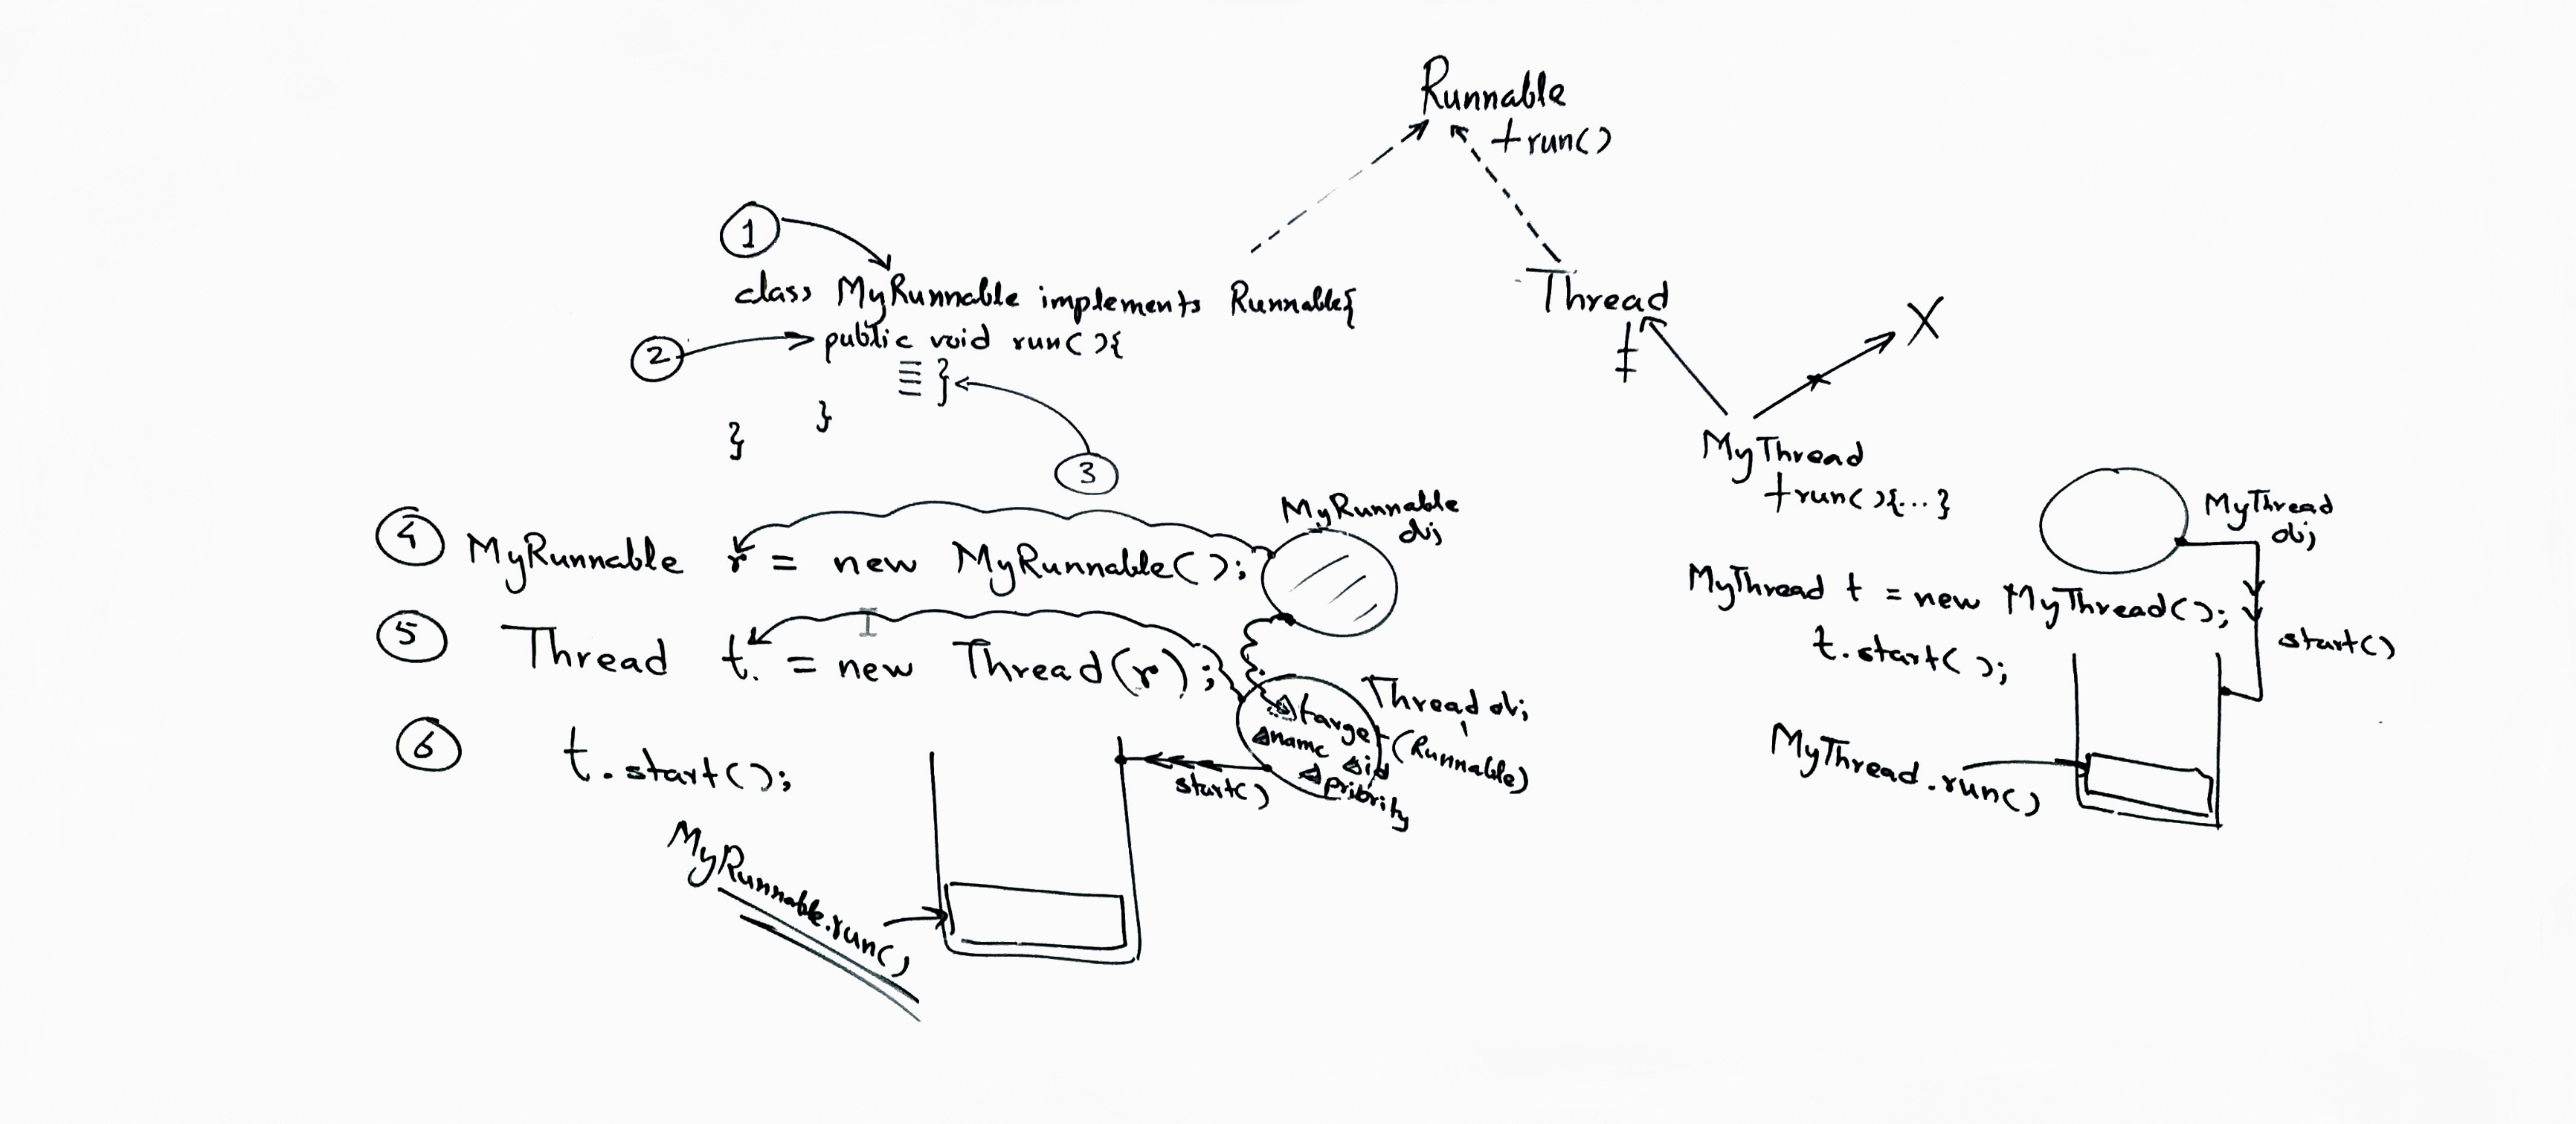 Runnable
+run()
1
class MyRunnable implements Runnable{
2
public void run(){
}
}
}
3
Thread
X
MyThread
+run(){...}
4
MyRunnable r = new MyRunnable();
MyRunnable
obj
5
Thread t = new Thread(r);
Thread obj
(Runnable)
target
name id
priority
6
t.start();
start()
MyRunnable.run()
MyThread
obj
MyThread t = new MyThread();
t.start();
start()
MyThread.run()